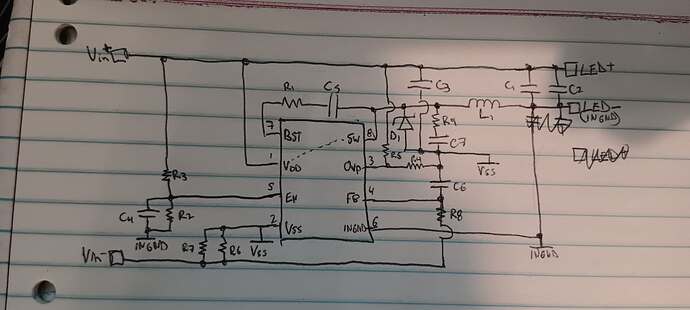 Vin+
LED+
C3
C1
C2
R1
C5
LED-
(INGND)
7
BST
SW
8
D1
R9
L1
C7
1
VDD
OVP
3
R5
VSS
R3
5
EN
FB
4
C6
C4
R2
2
VSS
INGND
6
R8
INGND
R7
R6
VSS
INGND
Vin-